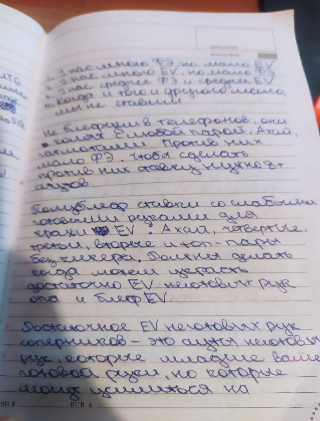 1. У нас много ФЭ, но мало EV
2. У нас много EV, но мало ФЭ
3. У нас среднее ФЭ и среднее EV
4. Когда и того и другого мало,
мы не ставим
Не блефуем в телефонов, они
с любой парой. Ахай,
Против них
мало ФЭ. Чтобы сделать
против них ставку нужно
аутов
Полублеф ставки со слабыми
готовыми руками для
кражи EV: Ахай, четвертые,
третьи, вторые и топ-пары
без кикера. Должны делать
когда можем украсть
достаточно EV неготовых рук
опа и блеф EV.
Достаточное EV неготовых рук
соперников - это ауты неготовых
рук, которые младше вашей
готовой руки, но которые
могут усилиться на